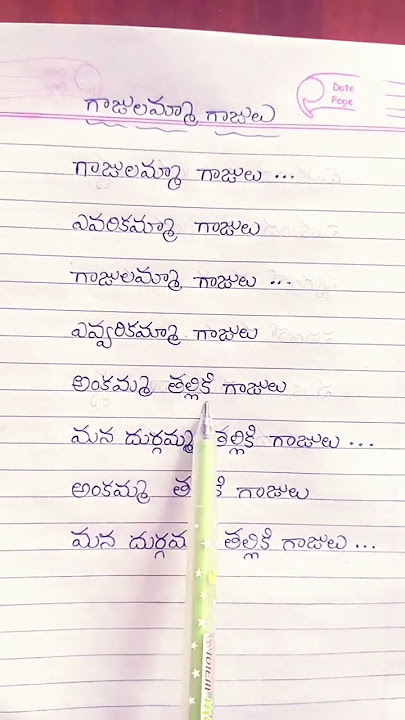 గాజులమ్మా గాజులు
Date
Page
గాజులమ్మా గాజులు ...
ఎవరికమ్మా గాజులు
గాజులమ్మా గాజులు ...
ఎవ్వరికమ్మా గాజులు
అంకమ్మ తల్లికి గాజులు
మన దుర్గమ్మ తల్లికి గాజులు ...
అంకమ్మ గాజులు
మన తల్లికి గాజులు ...